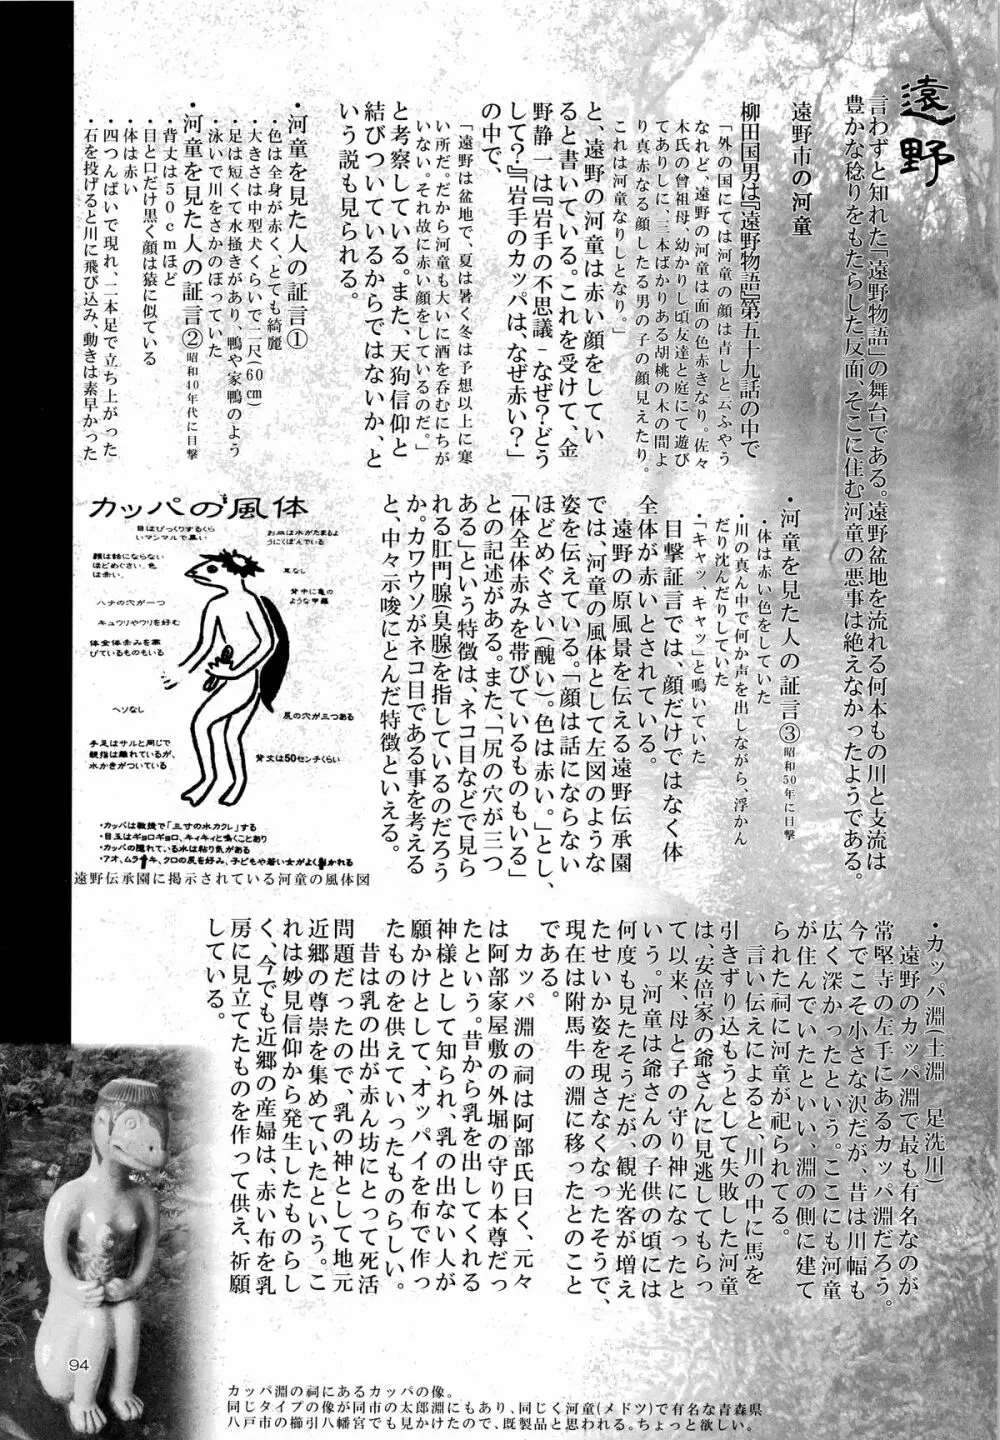 遠野
言わずと知れた「遠野物語」の舞台である。遠野盆地を流れる何本もの川と支流は
豊かな稔りをもたらした反面、そこに住む河童の悪事は絶えなかったようである。
遠野市の河童
柳田国男は『遠野物語』第五十九話の中で
「外の国にては河童の顔は青しと云ふやう
なれど、遠野の河童は面の色赤きなり。佐々
木氏の曾祖母、幼かりし頃友達と庭にて遊び
てありしに、三本ばかりある胡桃の木の間よ
り真赤なる顔したる男の子の顔見えたり。
これは河童なりしとなり。」
と、遠野の河童は赤い顔をしてい
ると書いている。これを受けて、金
野静一は『岩手の不思議-なぜ?どう
して?』『岩手のカッパは、なぜ赤い?」
の中で、
「遠野は盆地で、夏は暑く冬は予想以上に寒
い所だ。だから河童も大いに酒を呑むにちが
いない。それ故に赤い顔をしているのだ。」
と考察している。また、天狗信仰と
結びついているからではないか、と
いう説も見られる。
・河童を見た人の証言①
・色は全身が赤く、とても綺麗
・大きさは中型犬くらいで二尺(60cm)
・足は短くて水掻きがあり、鴨や家鴨のよう
・泳いで川をさかのぼっていた
・河童を見た人の証言② 昭和40年代に目撃
・背丈は50cmほど
・目と口だけ黒く顔は猿に似ている
・体は赤い
・四つんばいで現れ、二本足で立ち上がった
・石を投げると川に飛び込み、動きは素早かった
・河童を見た人の証言③ 昭和50年に目撃
・体は赤い色をしていた
・川の真ん中で何か声を出しながら、浮かん
だり沈んだりしていた
・「キャッ、キャッ」と鳴いていた
目撃証言では、顔だけではなく体
全体が赤いとされている。
遠野の原風景を伝える遠野伝承園
では、河童の風体として左図のような
姿を伝えている。「顔は話にならない
ほどめぐさい(醜い)。色は赤い。」とし、
「体全体赤みを帯びているものもいる」
との記述がある。また、「尻の穴が三つ
ある」という特徴は、ネコ目などで見ら
れる肛門腺(臭腺)を指しているのだろう
か。カワウソがネコ目である事を考える
と、中々示唆にとんだ特徴といえる。
カッパの風体
目はびっくりするくら
いマンマルで黒い
お皿は水がたまるよ
うにくぼんでいる
顔は話にならない
ほどめぐさい。色
は赤い。
耳なし
背中に亀の
ような甲羅
ハナの穴が一つ
キュウリやウリを好む
体全体赤みを帯
びているものもいる
ヘソなし
尻の穴が三つある
手足はサルと同じで
親指は離れているが、
水かきがついている
背丈は50センチくらい
・カッパは敏捷で「三寸の水カクレ」する
・目玉はギョロギョロ、キィキィと鳴くことあり
・カッパの隠れている水は粘り気がある
・アオ、ムラサキ、クロの尻を好み、子どもや若い女がよく引かれる
遠野伝承園に掲示されている河童の風体図
・カッパ淵(土淵 足洗川)
遠野のカッパ淵で最も有名なのが
常堅寺の左手にあるカッパ淵だろう。
今でこそ小さな沢だが、昔は川幅も
広く深かったという。ここにも河童
が住んでいたといい、淵の側に建て
られた祠に河童が祀られてる。
言い伝えによると、川の中に馬を
引きずり込もうとして失敗した河童
は、安倍家の爺さんに見逃してもらっ
て以来、母と子の守り神になったと
いう。河童は爺さんの子供の頃には
何度も見たそうだが、観光客が増え
たせいか姿を現さなくなったそうで、
現在は附馬牛の淵に移ったとのこと
である。
カッパ淵の祠は阿部氏曰く、元々
は阿部家屋敷の外堀の守り本尊だっ
たという。昔から乳を出してくれる
神様として知られ、乳の出ない人が
願かけとして、オッパイを布で作っ
たものを供えていったものらしい。
昔は乳の出が赤ん坊にとって死活
問題だったので、乳の神として地元
近郷の尊崇を集めていたという。こ
れは妙見信仰から発生したものらし
く、今でも近郷の産婦は、赤い布を乳
房に見立てたものを作って供え、祈願
している。
カッパ淵の祠にあるカッパの像。
同じタイプの像が同市の太郎淵にもあり、同じく河童(メドツ)で有名な青森県
八戸市の櫛引八幡宮でも見かけたので、既製品と思われる。ちょっと欲しい。
94